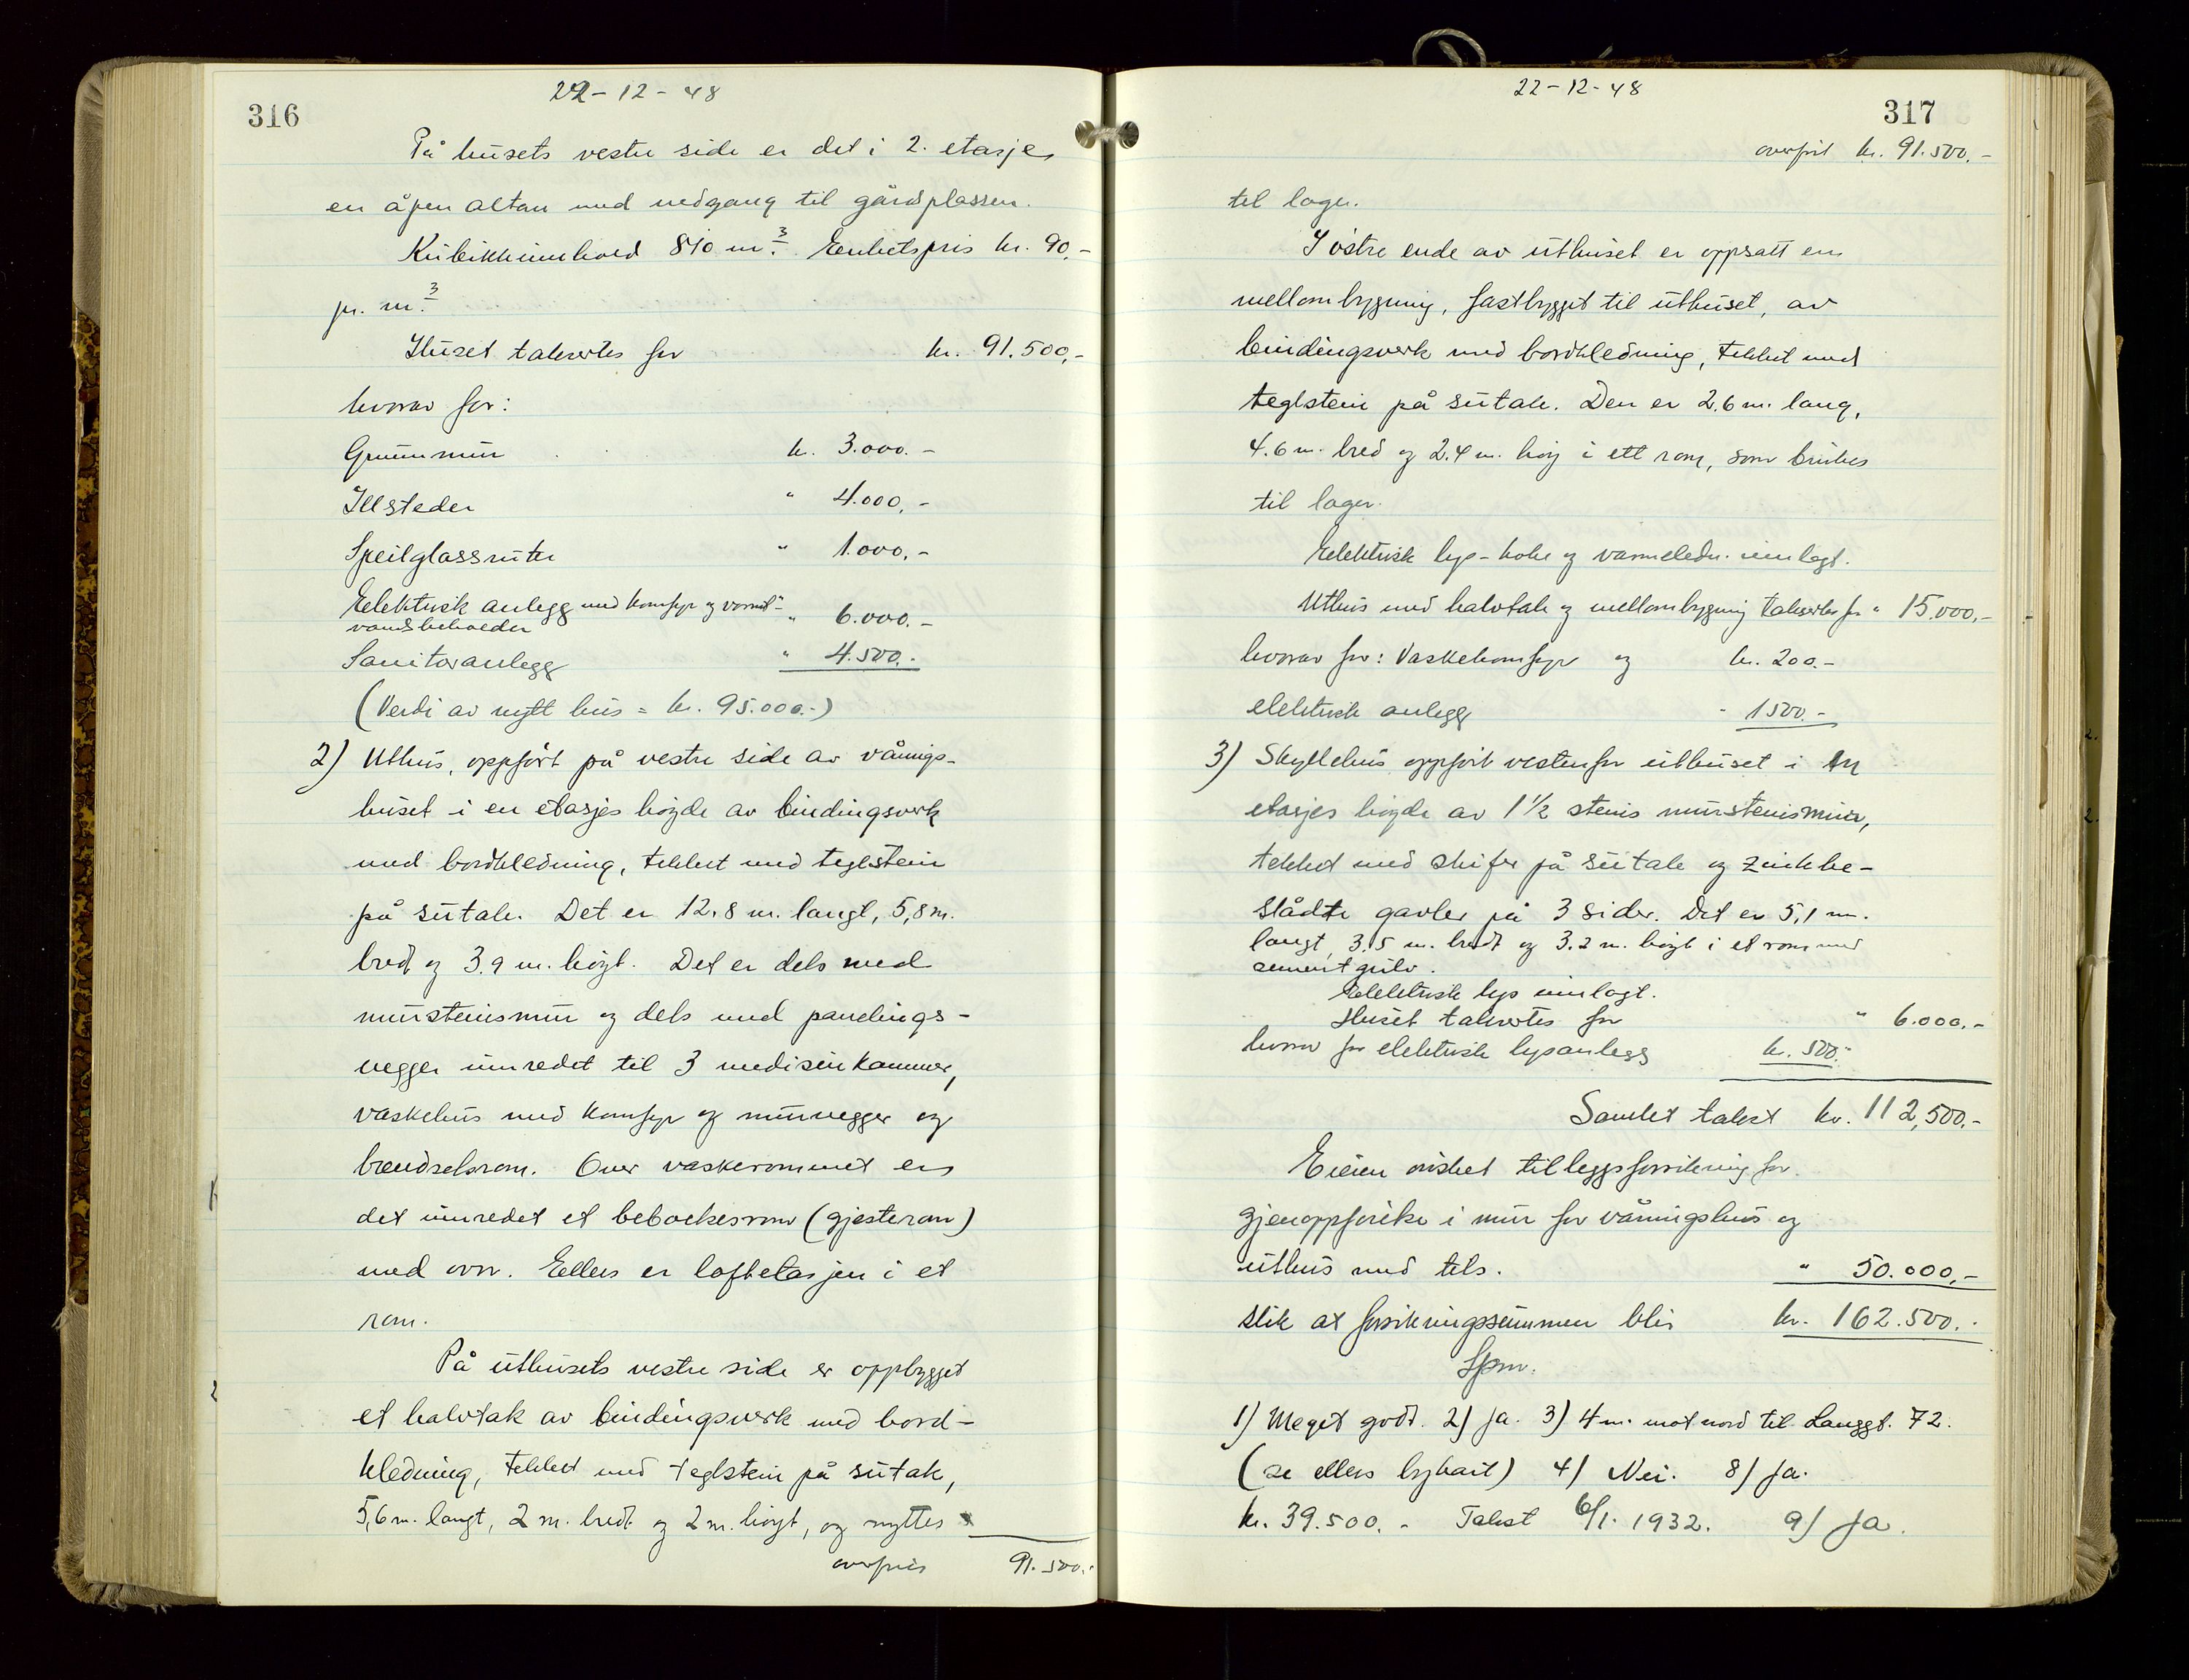 316
22-12-48
På husets vestre side er det i 2. etasje
en åpen altan med nedgang til gårdsplassen.
Kubikkinnhold 810 m³. Enhetspris kr. 90,-
pr. m³
Huset takseres for kr. 91.500,-
hvorav for:
Grunnmur kr. 3.000.-
Ildsteder " 4.000,-
Speilglassruter " 1.000,-
Elektrisk anlegg med komfyr og varmt-
vandsbeholder " 6.000.-
Sanitæranlegg " 4.500.-
(Verdi av nytt hus = kr. 95.000.-)
2) Uthus, oppført på vestre side av vånings-
huset i en etasjes høyde av bindingsverk
med bordkledning, tekket med teglstein
på sutak. Det er 12,8 m. langt, 5,8 m.
bredt og 3.9 m. høyt. Det er dels med
murstensmur og dels med panelings-
vegger innredet til 3 medisinkammer,
vaskehus med komfyr og murvegger og
brendselsrom. Over vaskerommet er
det innredet et beboelsesrom (gjesterom)
med ovn. Ellers er loftetasjen i et
rom.
På uthusets vestre side er oppbygget
et halvtak av bindingsverk med bord-
kledning, tekket med teglstein på sutak,
5,6 m. langt, 2 m. bredt og 2 m. høyt, og nyttes
overføres 91.500.-
22-12-48
317
overført kr. 91.500,-
til lager.
I østre ende av uthuset er oppsatt en
mellombygning, fastbygget til uthuset, av
bindingsverk med bordkledning, tekket med
teglstein på sutak. Den er 2.6 m. lang,
4.6 m. bred og 2.4 m. høy i ett rom, som brukes
til lager.
Elektrisk lys- koke og varmeledn. innlagt.
Uthus med halvtak og mellombygning takseres for " 15.000,-
hvorav for: Vaskekomfyr og kr. 200.-
elektrisk anlegg " 1500.-
3) Skyllehus oppført vestenfor uthuset i en
etasjes høyde av 1½ stens murstensmur,
tekket med skifer på sutak og zinkbe-
slådte gavler på 3 sider. Det er 5,1 m.
langt, 3.5 m. bredt og 3.2 m. høyt i et rom med
sementgulv.
Elektrisk lys innlagt.
Huset takseres for " 6.000,-
hvorav for elektrisk lysanlegg kr. 500.-
Samlet takst kr. 112,500.-
Eieren ønsket tilleggsforsikring for
gjenoppførelse i mur for våningshus og
uthus med tels. " 50.000,-
slik at forsikringssummen blir kr. 162.500.-
Spm.
1) Meget godt. 2) Ja. 3) 4 m. mot nord til Langgt. 72.
(se ellers bykart) 4) Nei. 8) Ja.
kr. 39.500.- Takst 6/1. 1932. 9) Ja.